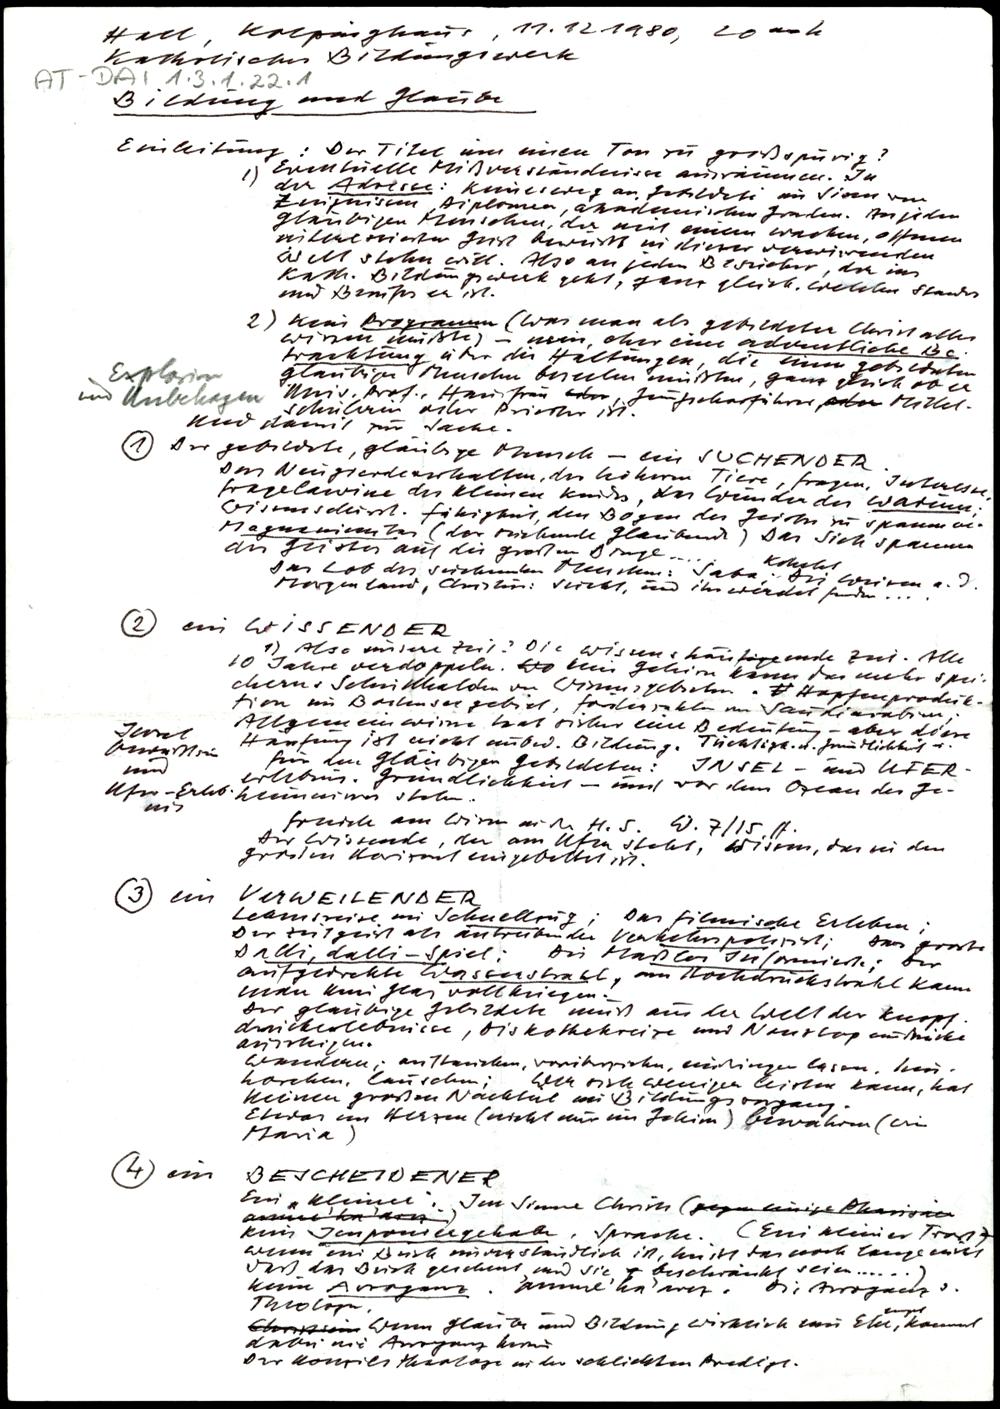 Hall, Kolpinghaus, 11.12.1980, 20 Uhr
Katholisches Bildungswerk
AT-DAI 1.3.1.22.1
Bildung und Glaube
Einleitung: Der Titel um einen Ton zu großspurig?
1) Eventuelle Mißverständnisse ausräumen. In
der Adresse: Keineswegs an gebildete im Sinne von
Zeugnissen, Diplomen, akademischen Graden. An jeden
gläubigen Menschen, der mit einem wachen, offenen
interessierten Geist bewußt in dieser verwirrenden
Welt stehen will. Also an jeden Besucher, der ins
Kath. Bildungswerk geht, ganz gleich, welchen Standes
und Berufes er ist.
2) Kein Programm (was man als gebildeter Christ alles
wissen müßte) – nein, eher eine adventliche Be-
trachtung über die Haltungen, die einen gebildeten
gläubigen Menschen beseelen müßten, ganz gleich ob er
Univ. Prof., Hausfrau oder Jungscharführer, oder Mittel-
schülerin oder Priester ist.
Explosion
und Unbehagen
Und damit zur Sache.
① Der gebildete, gläubige Mensch – ein SUCHENDER.
Das Neugierdeverhalten der höheren Tiere, fragen, Interesse,
Fragelawine des kleinen Kindes, das Wunder des warum;
Wissensdurst. Fähigkeit, den Bogen des Geistes zu spannen.
Magnanimitas (der suchende Glaubende) Das Sich spannen
des Geistes auf die großen Dinge....
Das Lob des suchenden Menschen: Saba; Kohelet Die Weisen a. d.
Morgenland, Christus: Suchet, und ihr werdet finden....
② ein WISSENDER
1) Also unsere Zeit? Die wissenshäufende Zeit. Alle
10 Jahre verdoppeln. Kein Gehirn kann das mehr spei-
chern. Schutthalden von Wissensgebieten. Hopfenproduk-
tion im Bodenseegebiet, Förderzahlen von Saudiarabien;
Allgemeinwissen hat sicher eine Bedeutung – aber diese
Häufung ist nicht unbed. Bildung. Tüchtigk. u. Gründlichkeit
Für den gläubigen Gebildeten: INSEL – und UFER-
erlebnis. Gründlichkeit – und vor dem Ozean des Ge-
heimnisses stehen.
Insel
bewußtsein
und
Ufer-Erleb-
nis
Freude am Wissen in der H.S. W. 7/15 ff.
Der Wissende, der am Ufer steht, Wissen, das in den
großen Horizont eingebettet ist.
③ ein VERWEILENDER
Lebensreise im Schnellzug; Das filmische Erleben;
Der Zeitgeist als antreibender Verkehrspolizist; Das große
Dalli, dalli-Spiel; Die Maßlos Informierte; Der
aufgedrehte Wasserstrahl, am Hochdruckstrahl kann
man kein Glas vollkriegen.
Der gläubige Gebildete muß aus der Welt der Knopf-
druckerlebnisse, Diskothekreize und Nonstop eindrücke
aussteigen.
Wandern; auftauchen, vorüberziehen, eindringen lassen, hin-
horchen, lauschen; Wer sich weniger leisten kann, hat
keinen großen Nachteil im Bildungsvorgang.
Etwas im Herzen (nicht nur im Gehirn) bewahren (wie
Maria)
④ ein BESCHEIDENER
Ein „Kleiner“. Im Sinne Christi (gegen einige Pharisäer
amme ha'arez)
Kein Imponiergehabe. Sprache. (Ein kleiner Trost?
Wenn ein Buch unverständlich ist, heißt das noch lange nicht
daß das Buch gescheit und Sie beschränkt seien.....)
Keine Arroganz. 'amme ha'arez. Die Arroganz d.
Theologen.
Wenn Glaube und Bildung wirklich eine Ehe eingeht, kommt
dabei nie Arroganz heraus
Der Konzilstheologe in der schlichten Predigt.